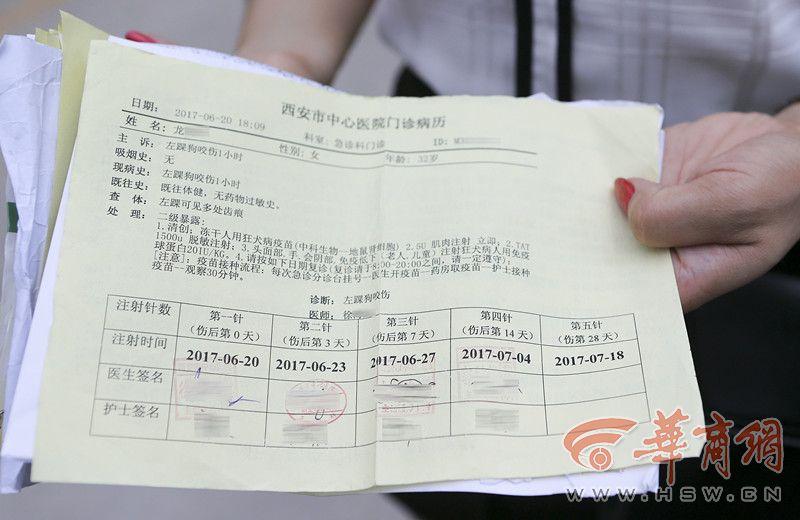 西安市中心医院门诊病历
日期: 2017-06-20 18:09
姓名: 龙 科室: 急诊科门诊 ID: M3
性别: 女 年龄: 32岁
主诉: 左踝狗咬伤1小时
吸烟史: 无
现病史: 左踝狗咬伤1小时
既往史: 既往体健,无药物过敏史。
查体: 左踝可见多处齿痕
处理: 二级暴露:
1.清创; 冻干人用狂犬病疫苗(中科生物一地鼠肾细胞) 2.5U 肌肉注射 立即; 2.TAT
1500u 脱敏注射; 3.头面部,手,会阴部,免疫低下(老人,儿童)注射狂犬病人用免疫
球蛋白20IU/KG。4.请按如下日期复诊(复诊请于8:00-20:00之间,请一定遵守)
[注意]: 疫苗接种流程: 每次急诊分诊台挂号一医生开疫苗一药房取疫苗一护士接种
疫苗一观察30分钟。
诊断: 左踝狗咬伤
医师: 徐
注射针数 第一针 第二针 第三针 第四针 第五针
(伤后第 0 天) (伤后第 3 天) (伤后第 7 天) (伤后第 14 天) (伤后第 28 天)
注射时间 2017-06-20 2017-06-23 2017-06-27 2017-07-04 2017-07-18
医生签名
护士签名
華商網
WWW.HSW.CN